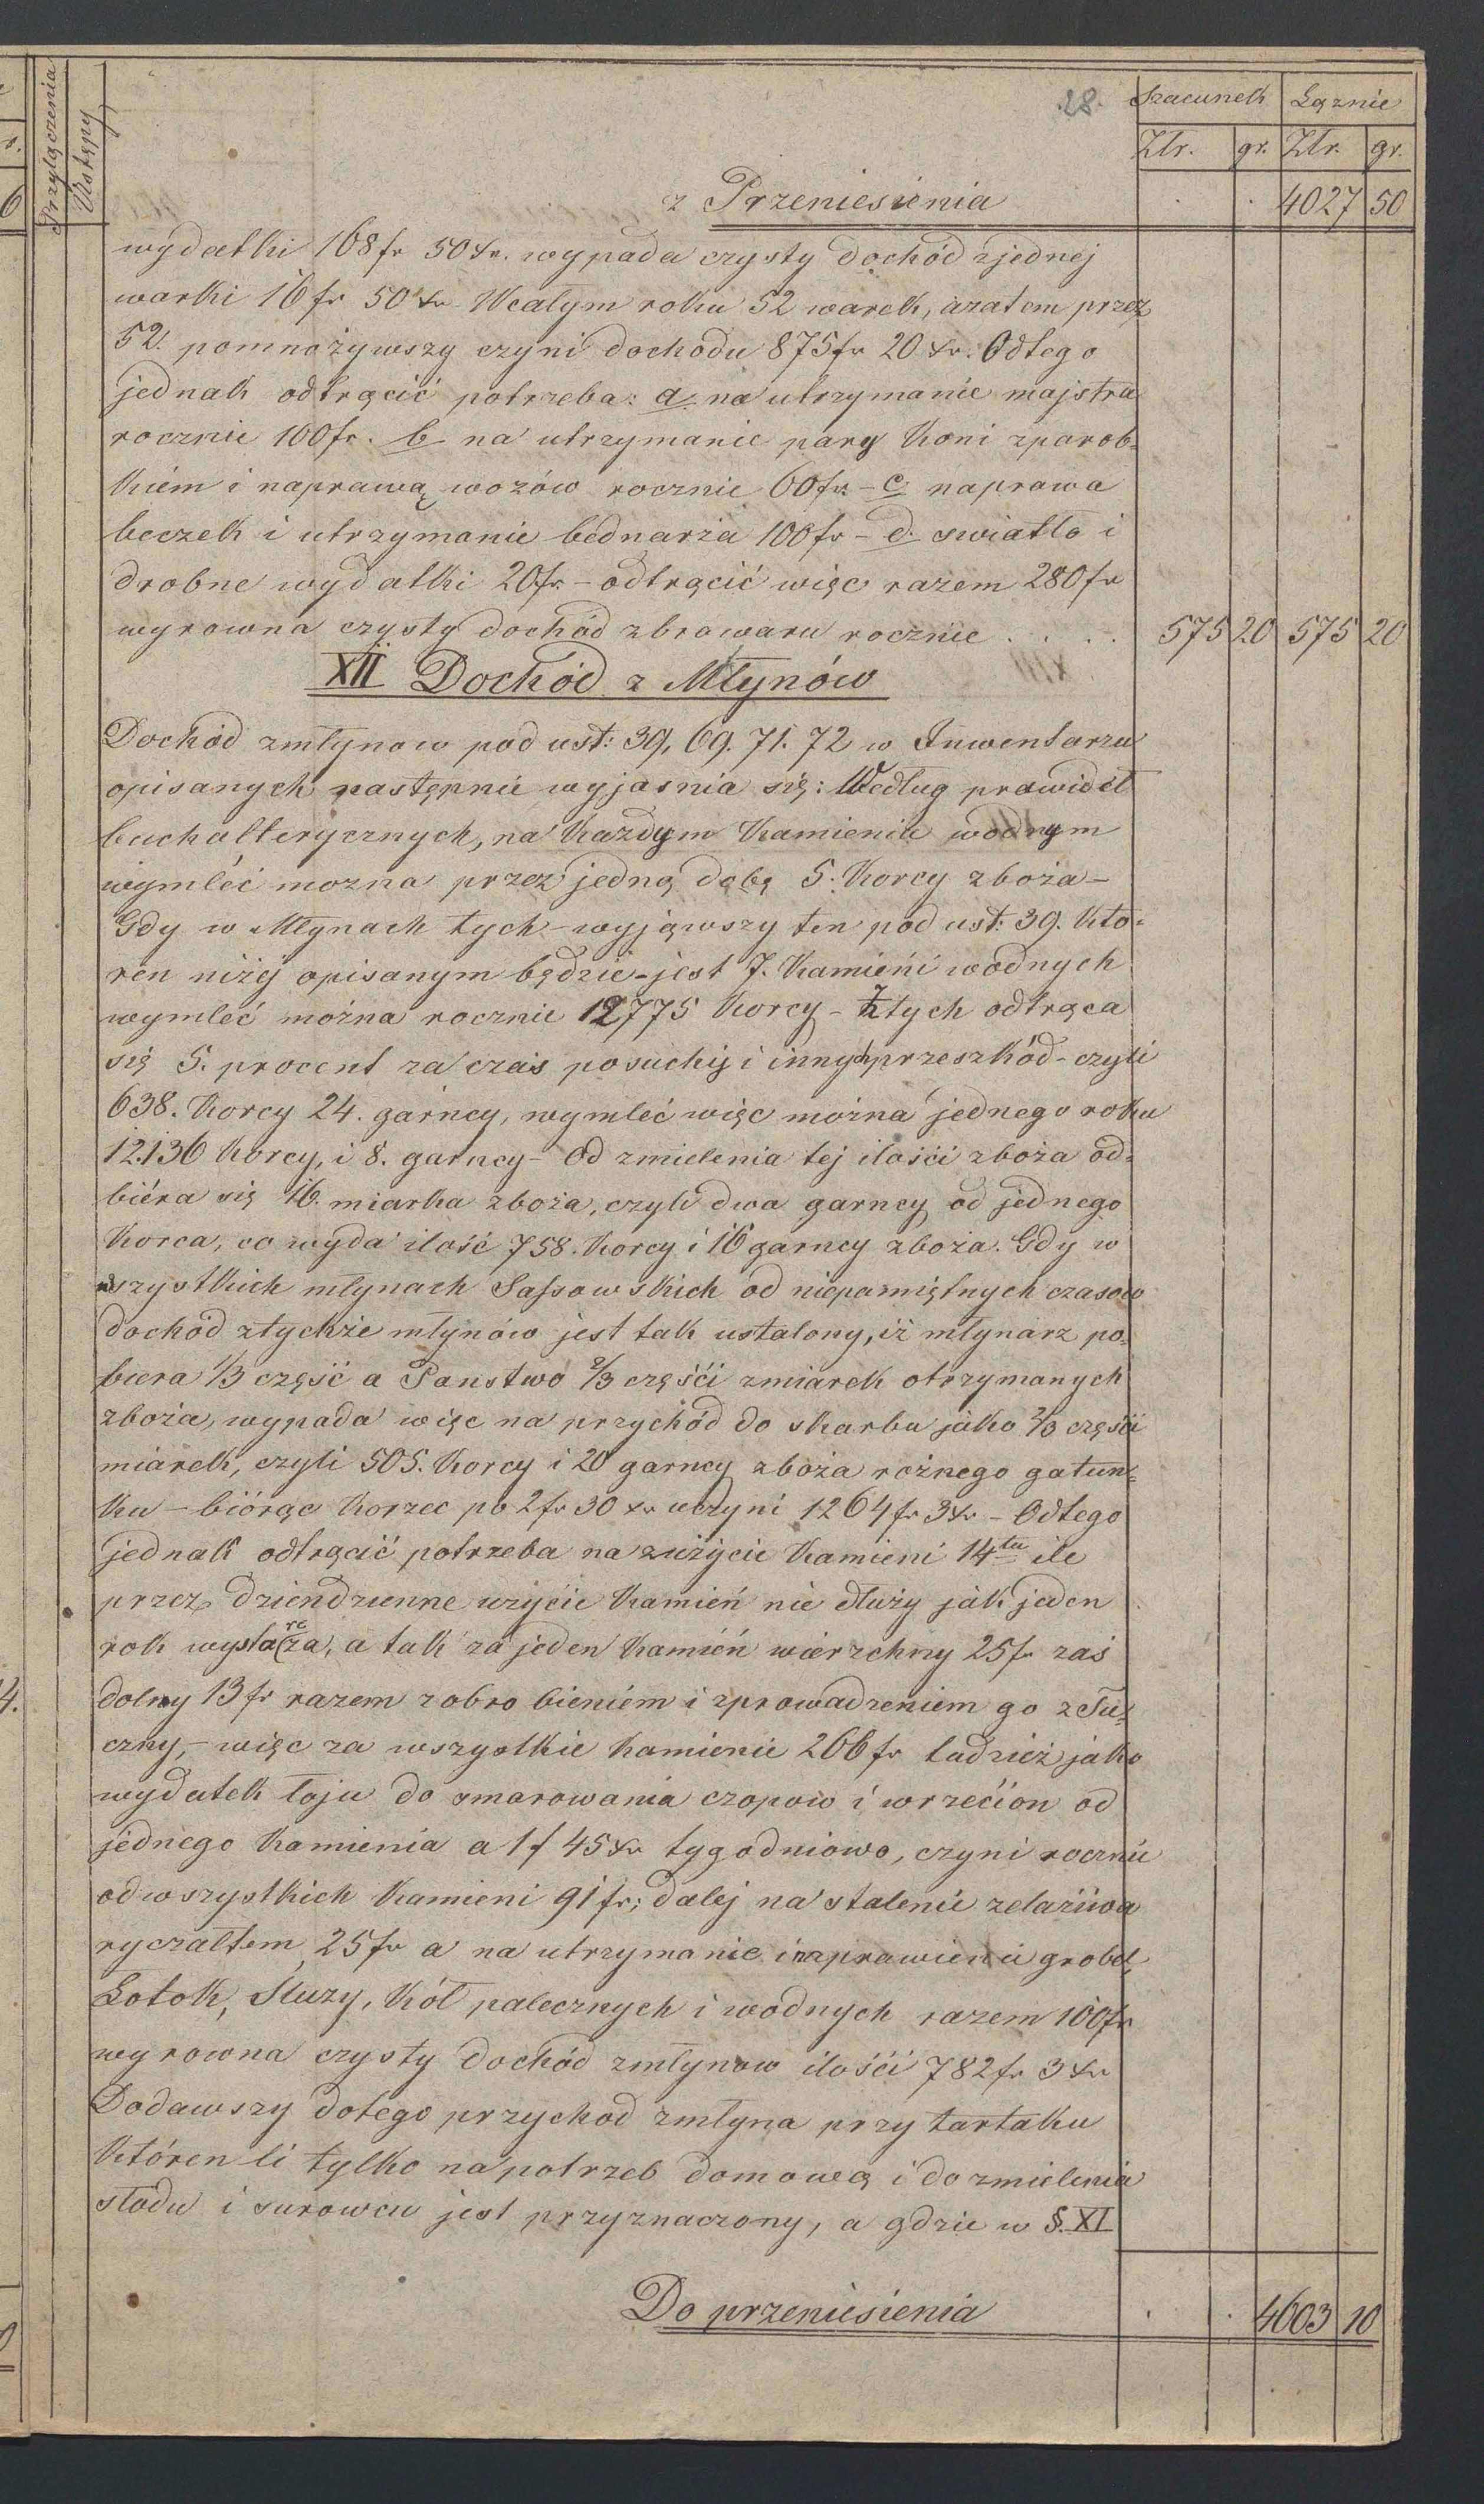 Przyłączenia
Ustępy
28.
Szacunek Łącznie
Złr. gr. Złr. gr.
z Przeniesienia . . 4027 50
wydatki 168 fr 50 xr. wypada czysty dochód zjednej
warki 16 fr 50 xr Wcałym roku 52 warek, azatem przez
52. pomnożywszy czyni dochodu 875 fr 20 xr. Odtego
jednak odtrącić potrzeba: a. na utrzymanie majstra
rocznie 100 fr. b na utrzymanie pary koni zparob-
kiém i naprawą wozów rocznie 60 fr - c. naprawa
beczek i utrzymanie bednarza 100 fr - d. swiatło i
drobne wydatki 20 fr - odtrącić więc razem 280 fr
wyrowna czysty dochód zbrowaru rocznie . . . . 575 20 575 20
XII Dochód z Młynów
Dochód zmłynow pod ust: 39, 69. 71. 72 w Inwentarzu
opisanych następnie wyjasnia się: Według prawideł
buchalterycznych, na każdym kamieniu wodnym
wymléć mozna przez jedną dobę 5. korcy zboża -
Gdy w Młynach tych - wyjąwszy ten pod ust: 39. któ-
ren niżéj opisanym będzie - jest 7. kamieńi wodnych
wymléć można rocznie 12775 korcy - z tych odtrąca
się 5. procent za czas posuchy i innych przeszkód - czyli
638. korcy 24. garncy, wymléć więc można jednego roku
12.136 korcy, i 8. garncy - Od zmielenia téj ilości zboża od-
biéra się 16. miarka zboża, czyli dwa garncy od jednego
korca, co wyda ilość 758. korcy i 16 garncy zboża. Gdy w
wszystkich młynach Sassowskich od niepamiętnych czasow
dochód ztychże młynów jest tak ustalony, iż młynarz po-
biera 1/3 część a Panstwo 2/3 częśći zmiarek otrzymanych
zboża, wypada więc na przychód do skarbu jako 2/3 częśći
miarek, czyli 505. korcy i 20 garncy zboża rożnego gatun-
ku - biórąc korzec po 2 fr 30 xr uczyni 1264 fr 3 xr - Odtego
jednak odtrącić potrzeba na zużycie kamieni 14tu ile
przez dziendzienne uzycie kamień nie dłuży jak jeden
rok wystarcza, a tak za jeden kamién wierzchny 25 fr zaś
dolny 13 fr razem zobrobieniém i zprowadzeniem go z Tu-
czny, - więc za wszystkie kamienie 266 fr tudzież jako
wydatek łoju do smarowania czopow i wrzećion od
jednego kamienia a 1 f 45 xr tygodniowo, czyni rocznie
odwszystkich kamieni 91 fr; daléj na stalenie zelaziwa
ryczałtem 25 fr a na utrzymanie i naprawienie grobel,
Łotok, Sluzy, Kół palecznych i wodnych razem 100 fr
wyrowna czysty dochód zmłynow ilości 782 fr 3 xr
Dodawszy dotego przychod zmłyna przy tartaku
któren li tylko na potrzeb domową i do zmielenia
słodu i surowcu jest przyznaczony, a gdzie w §. XI
Do przeniesienia . . 4603 10